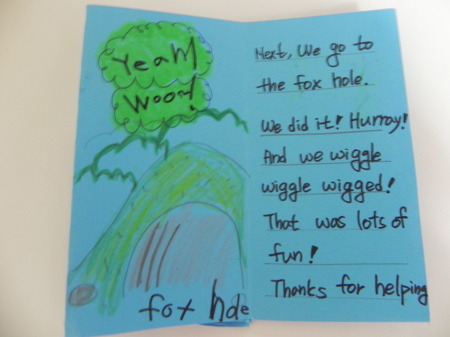 Yeah!
Wooo!
fox hole
Next, we go to
the fox hole.
We did it! Hurray!
And we wiggle
wiggle wigged!
That was lots of
fun!
Thanks for helping